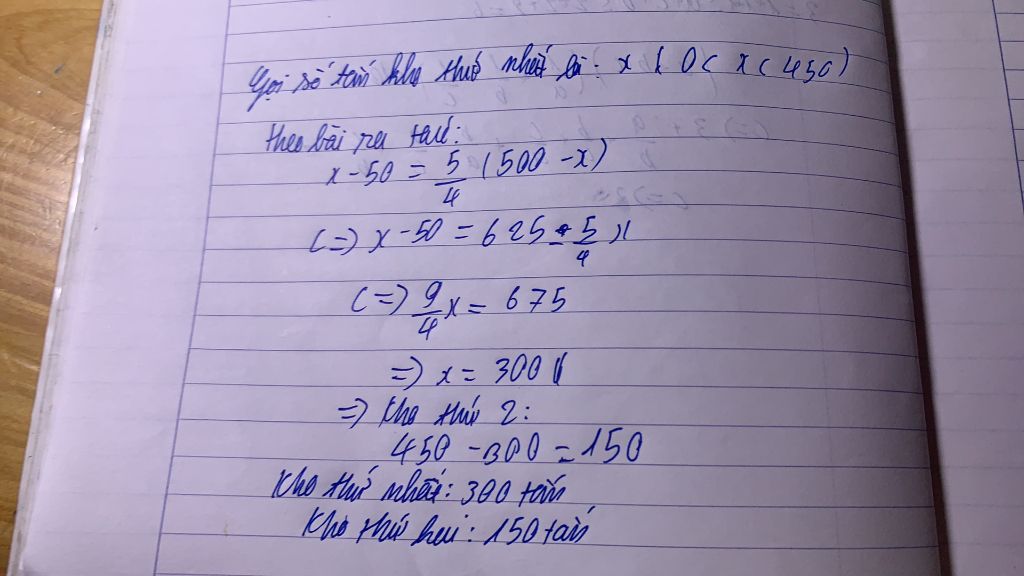 Gọi số tấn kho thứ nhất là: x ( 0 < x < 450 )
theo bài ra ta có:
x - 50 = 5/4 (500 - x)
<=> x - 50 = 625 - 5/4 x
<=> 9/4 x = 675
=> x = 300
=> Kho thứ 2:
450 - 300 = 150
Kho thứ nhất: 300 tấn
Kho thứ hai: 150 tấn